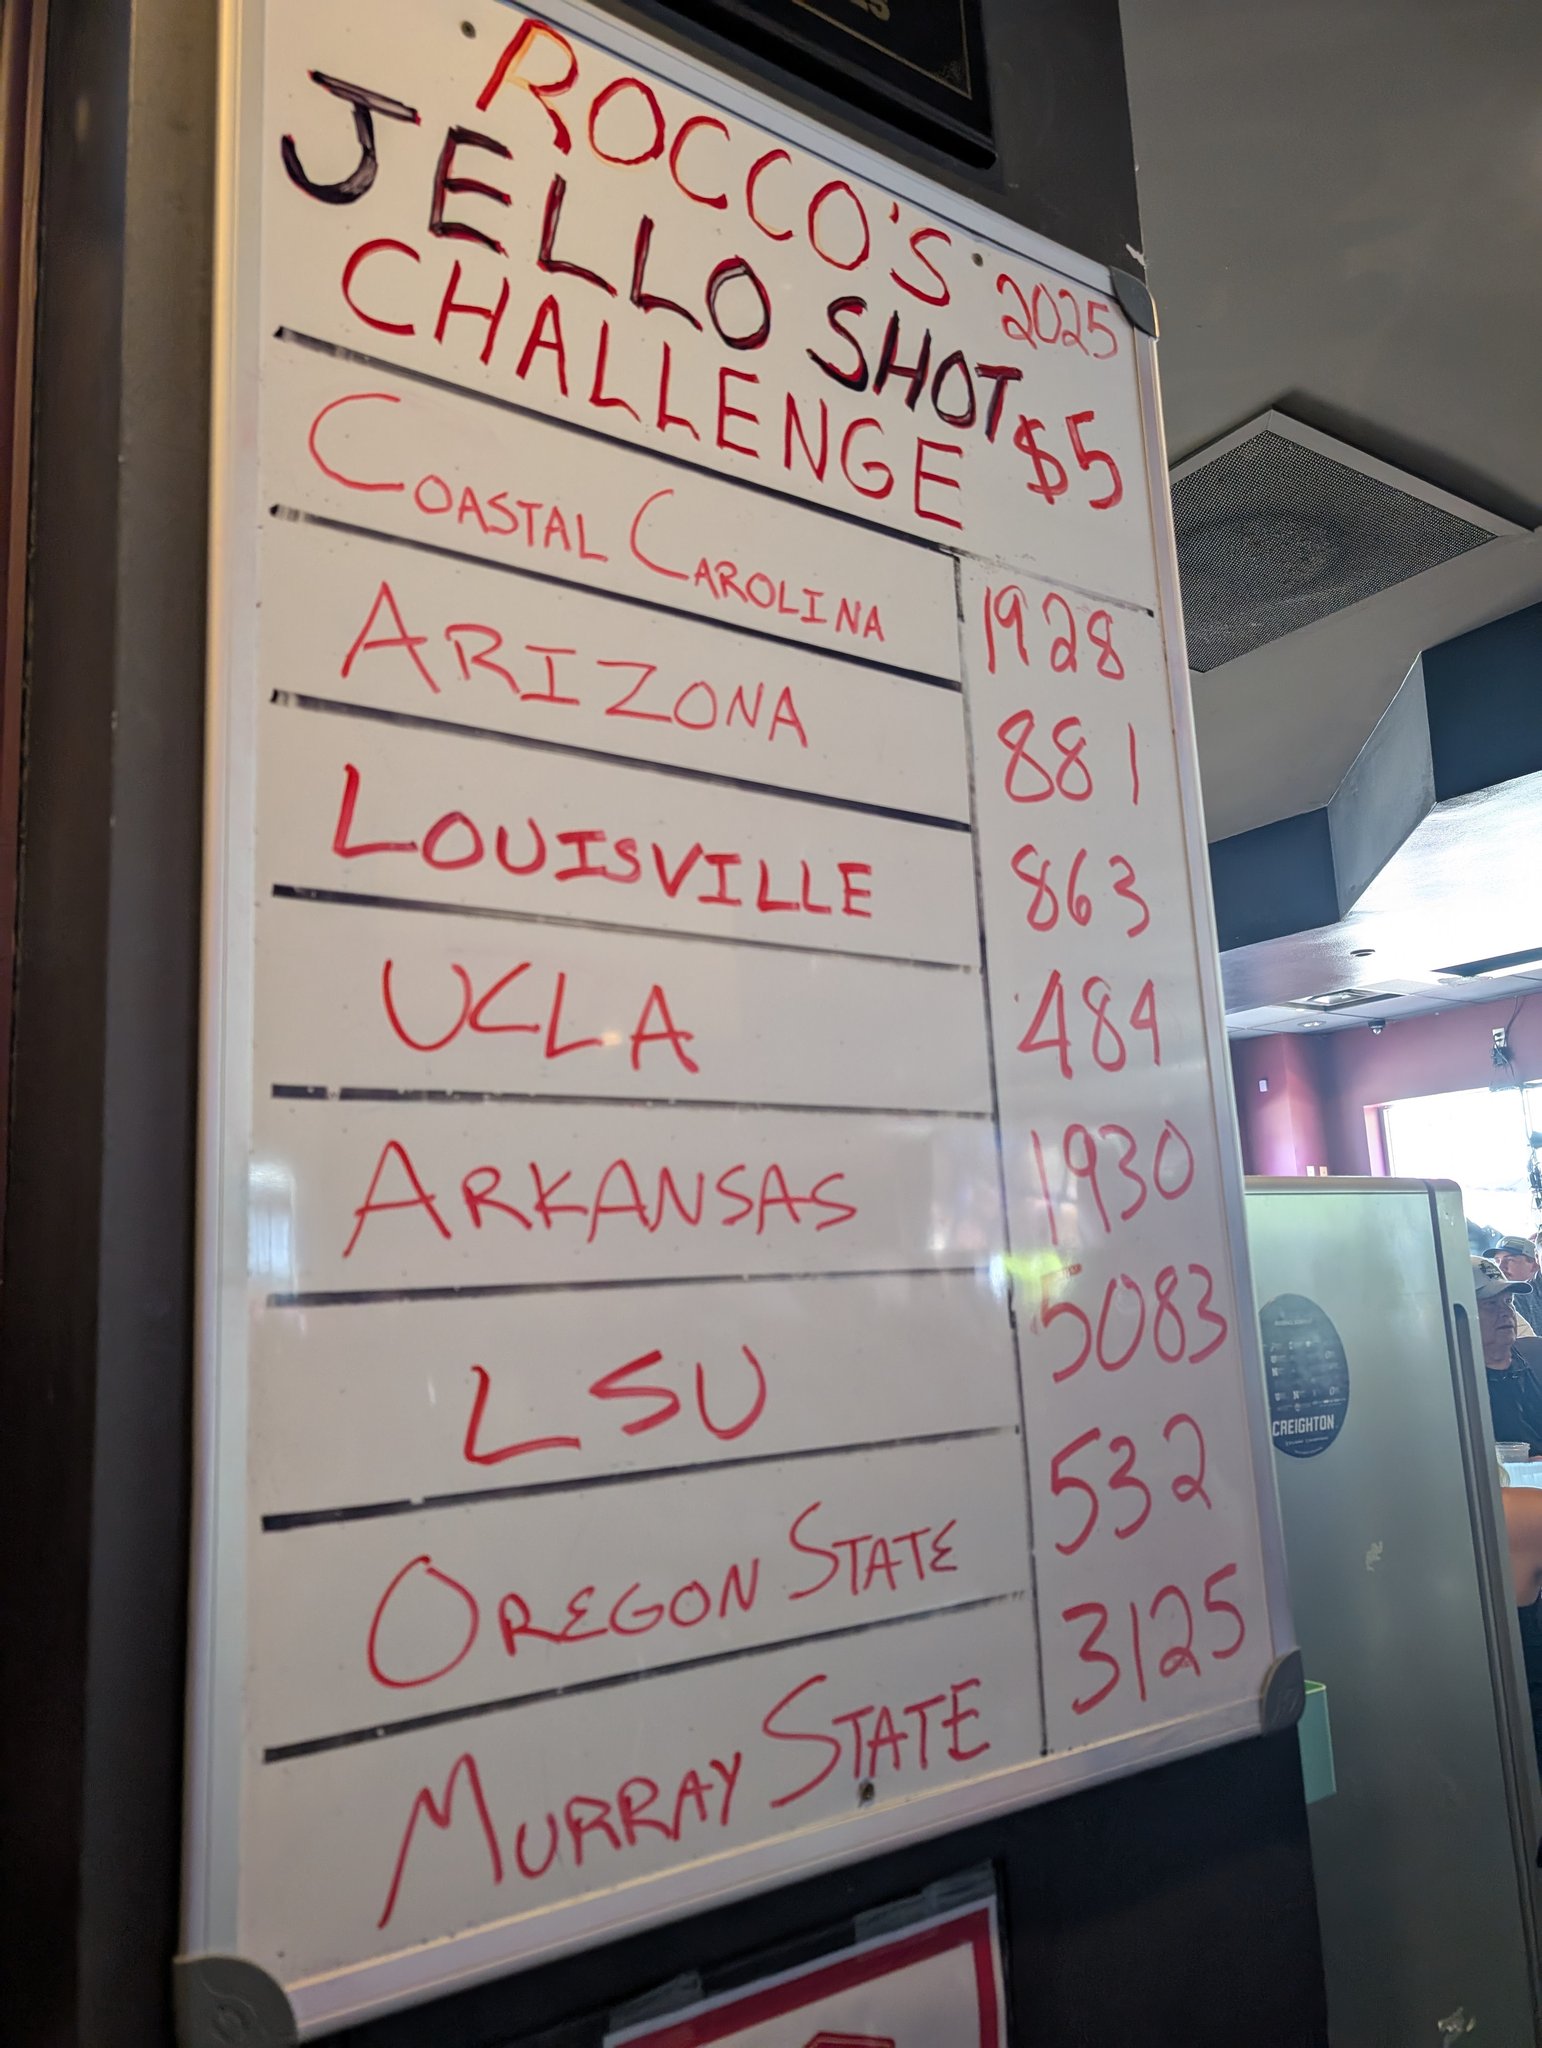 ROCCO'S 2025
JELLO SHOT
CHALLENGE $5
COASTAL CAROLINA 1928
ARIZONA 881
LOUISVILLE 863
UCLA 484
ARKANSAS 1930
LSU 5083
OREGON STATE 532
MURRAY STATE 3125
CREIGHTON